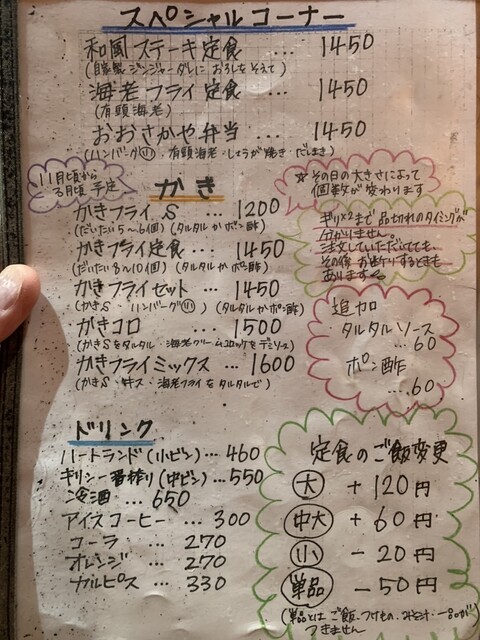 スペシャルコーナー
和風ステーキ定食 … 1450
(自家製ジンジャーダレに おろしをそえて)
海老フライ定食 … 1450
(有頭海老)
おおさかや弁当 … 1450
(ハンバーグ小・有頭海老・しょうが焼き・だしまき)
11月頃から
3月頃 予定
かき
☆その日の大きさによって
個数が変わります
かきフライ S … 1200
(だいたい5〜6個) (タルタルかポン酢)
かきフライ定食 … 1450
(だいたい8〜10個) (タルタルかポン酢)
かきフライセット … 1450
(かきS・ハンバーグ小) (タルタルかポン酢)
かきコロ … 1500
(かきSをタルタル・海老クリームコロッケをデミソース)
かきフライミックス … 1600
(かきS・キス・海老フライをタルタルで)
ギリギリまで品切れのタイミングが
分かりません。
注文していただいてても、
その後 お断りするときも
あります
追加
タルタルソース
…60
ポン酢
…60
ドリンク
ハートランド(小ビン) … 460
キリン一番搾り(中ビン) … 550
冷酒 … 650
アイスコーヒー … 300
コーラ … 270
オレンジ … 270
カルピス … 330
定食のご飯変更
大 + 120円
中大 + 60円
小 − 20円
単品 − 50円
(単品とは ご飯、つけもの、みそ汁、一品が
つきません